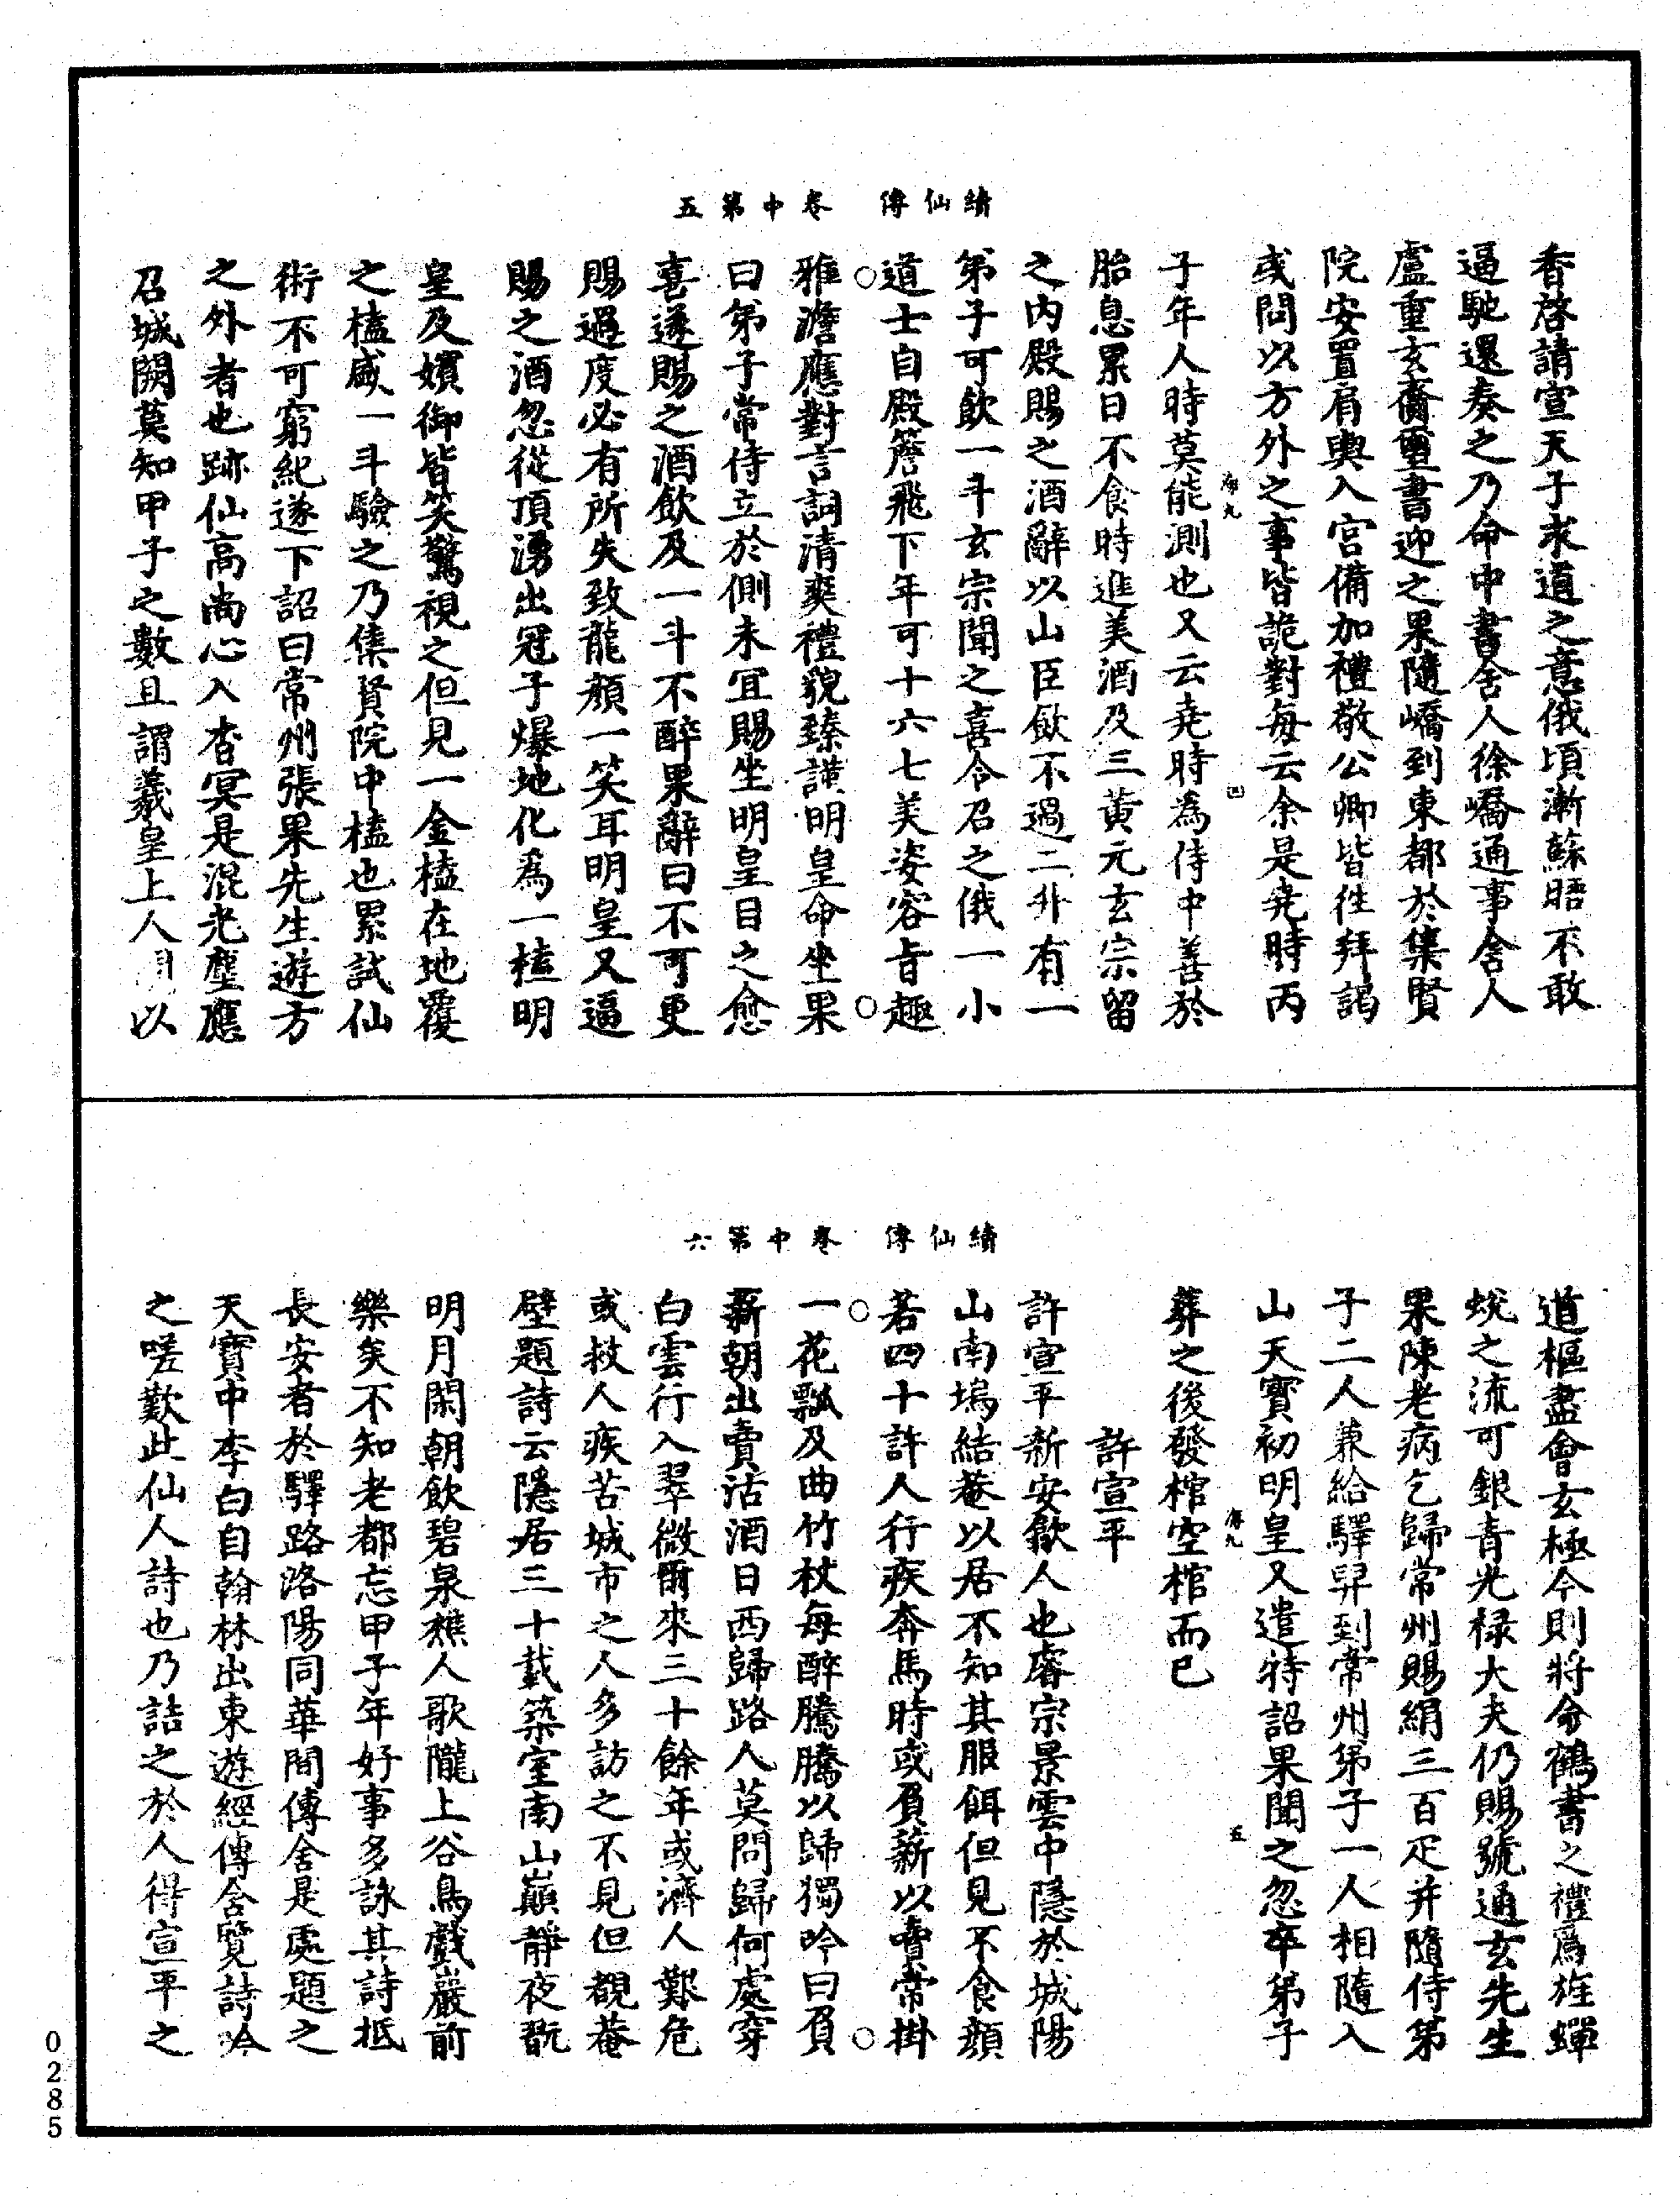 續仙傳　卷中第五
香啓請宣天子求道之意俄頃漸蘇晤不敢
逼馳還奏之乃命中書舍人徐嶠通事舍人
盧重玄齎璽書迎之果隨嶠到東都於集賢
院安置肩輿入宮備加禮敬公卿皆徃拜謁
或問以方外之事皆詭對每云余是堯時丙
子年人時莫能測也又云堯時爲侍中善於
胎息累日不食時進美酒及三黄元玄宗留
之内殿賜之酒辭以山臣飲不過二升有一
弟子可飲一斗玄宗聞之喜令召之俄一小
道士自殿簷飛下年可十六七美姿容旨趣
雅澹應對言詞清爽禮貌臻謹明皇命坐果
曰弟子常侍立於側未宜賜坐明皇目之愈
喜遂賜之酒飲及一斗不醉果辭曰不可更
賜過度必有所失致龍顏一笑耳明皇又逼
賜之酒忽從頂湧出冠子爆地化爲一榼明
皇及嬪御皆笑驚視之但見一金榼在地覆
之榼盛一斗驗之乃集賢院中榼也累試仙
術不可窮紀遂下詔曰常州張果先生遊方
之外者也跡仙高尚心入杳冥是混光塵應
召城闕莫知甲子之數且謂羲皇上人以
續仙傳　卷中第六
道樞盡會玄極今則將命鶴書之禮爲旌蟬
蛻之流可銀青光禄大夫仍賜號通玄先生
果陳老病乞歸常州賜絹三百疋并隨侍弟
子二人兼給驛舁到常州弟子一人相隨入
山天寳初明皇又遣特詔果聞之忽卒弟子
葬之後發棺空棺而已
許宣平
許宣平新安歙人也睿宗景雲中隱於城陽
山南塢結菴以居不知其服餌但見不食顏
若四十許人行疾奔馬時或負薪以賣常掛
一花瓢及曲竹杖每醉騰騰以歸獨吟曰負
薪朝出賣沽酒日西歸路人莫問歸何處穿
白雲行入翠微爾來三十餘年或濟人艱危
或救人疾苦城市之人多訪之不見但覩菴
壁題詩云隱居三十載築室南山巔靜夜翫
明月閑朝飲碧泉樵人歌隴上谷鳥戲巖前
樂矣不知老都忘甲子年好事多詠其詩抵
長安者於驛路洛陽同華間傳舍是處題之
天寳中李白自翰林出東遊經傳舍覽詩吟
之嗟歎此仙人詩也乃詰之於人得宣平之
0285